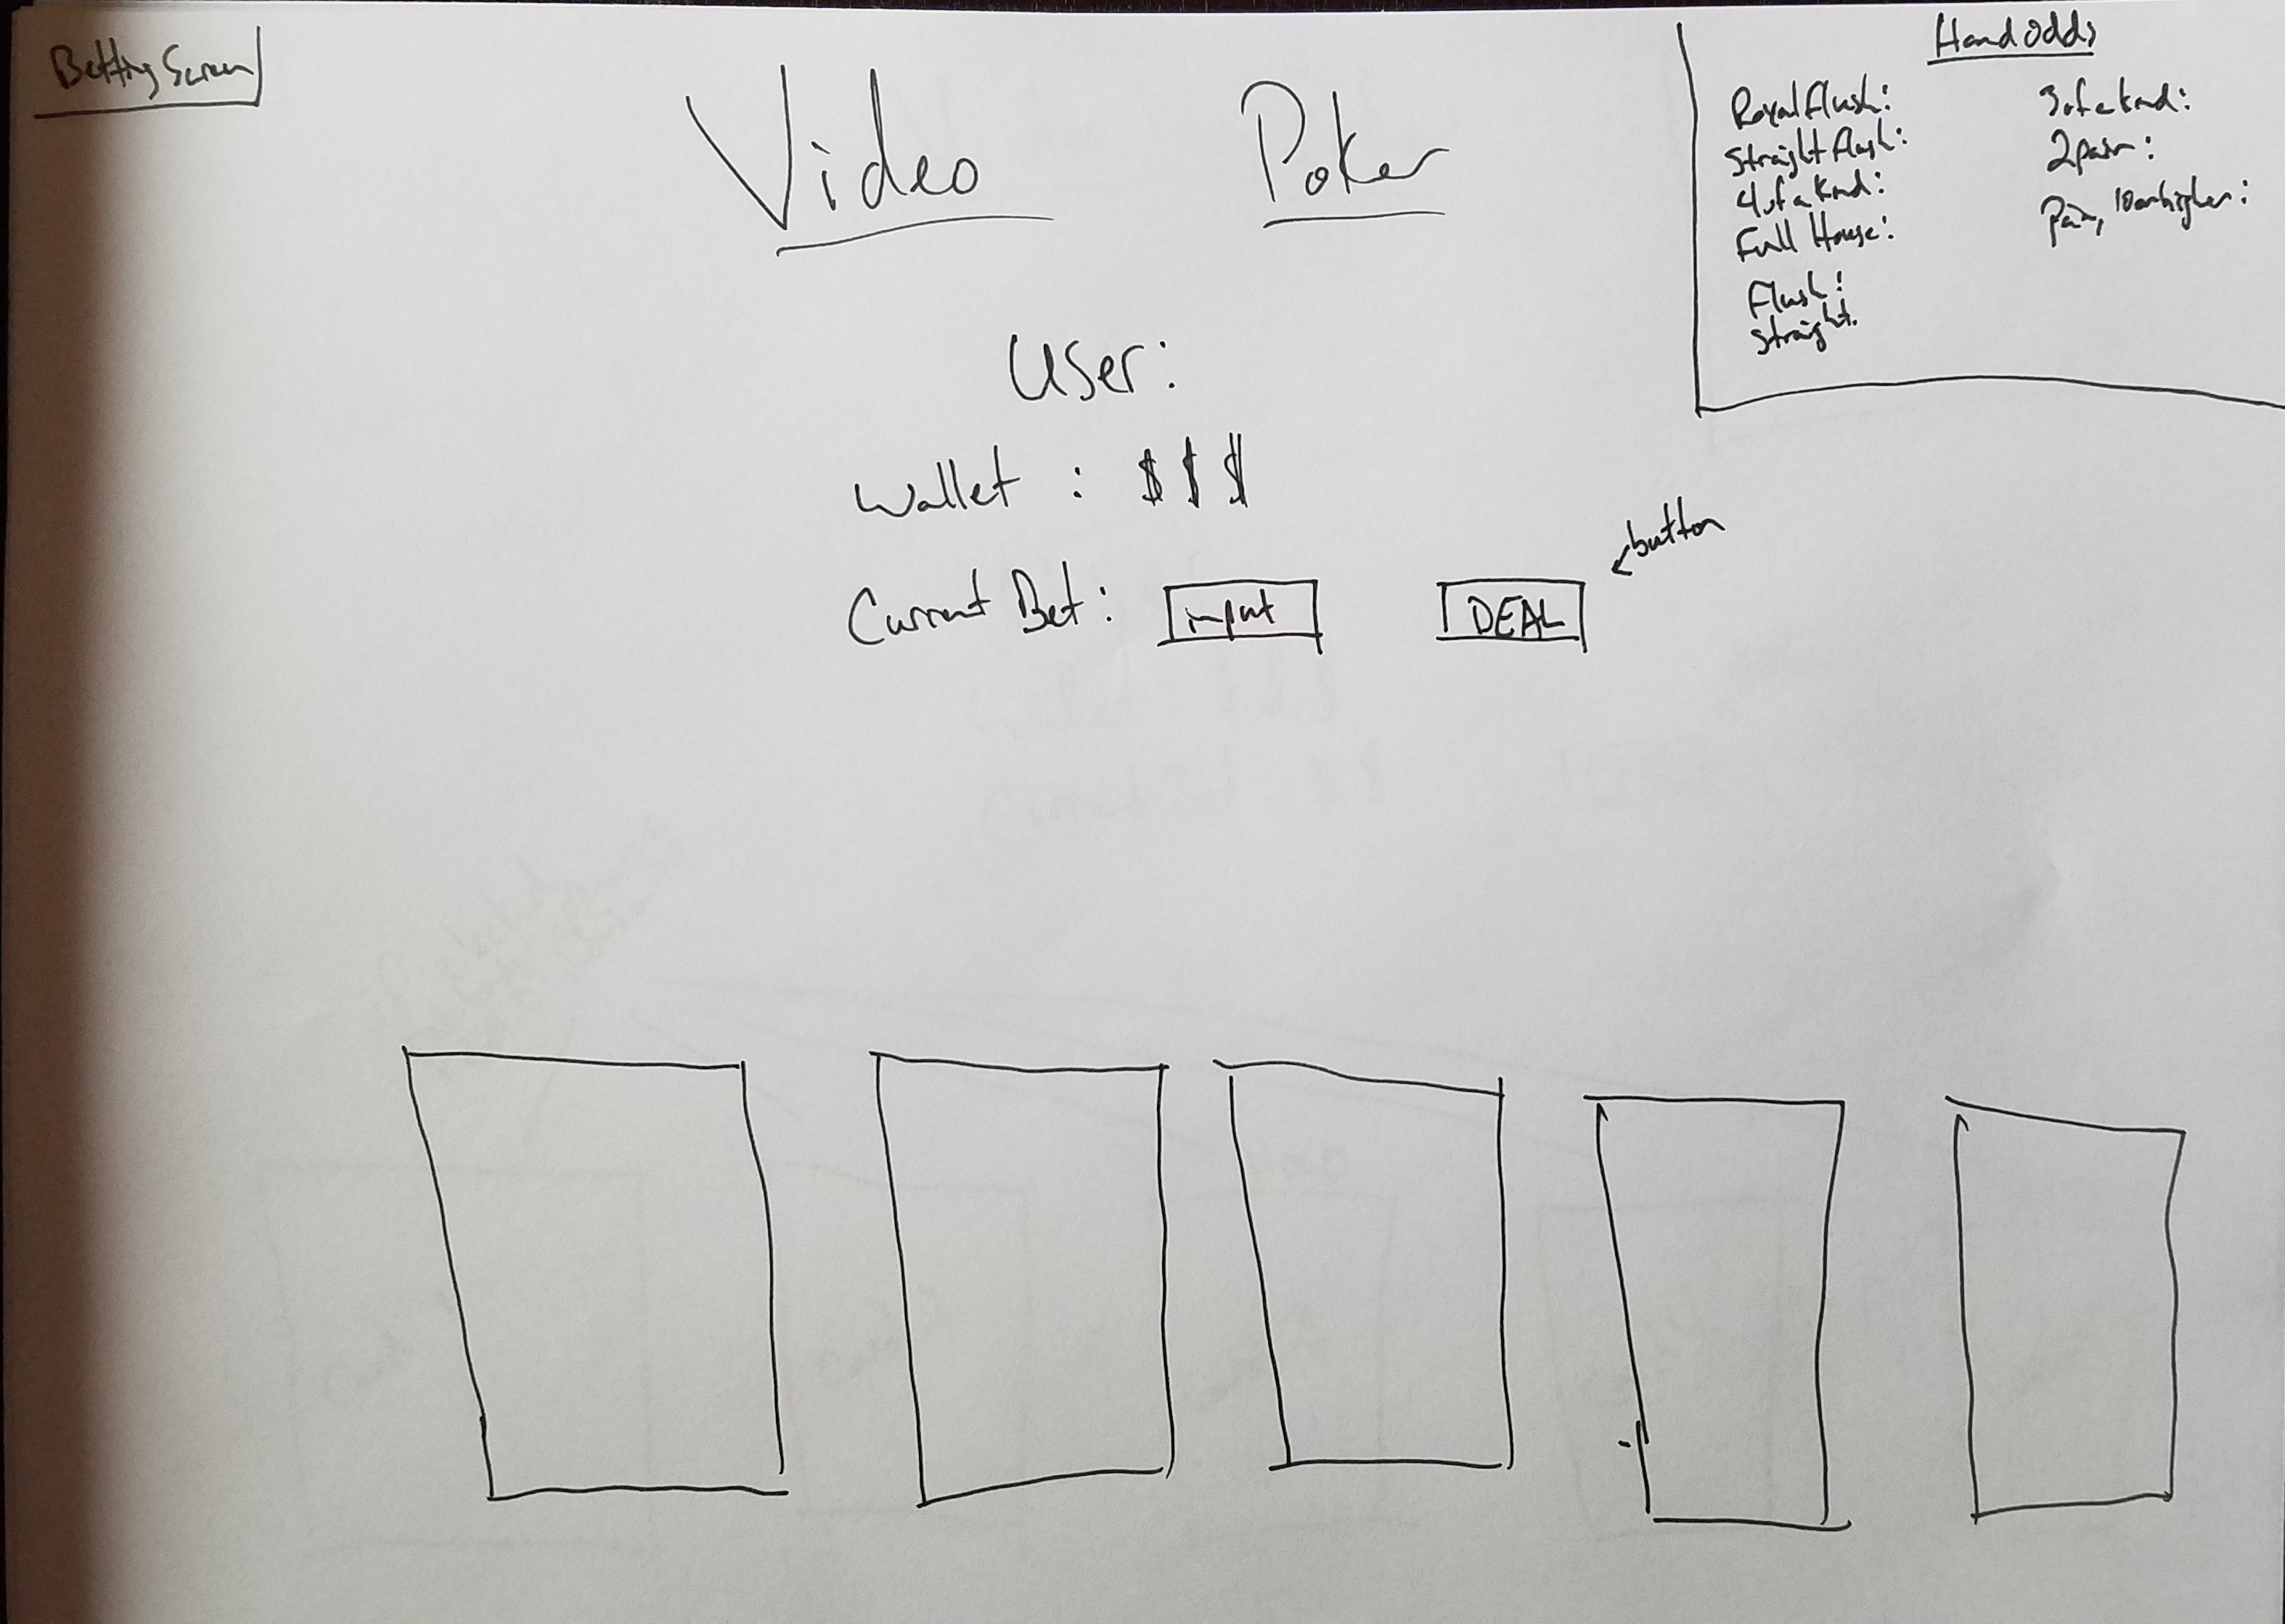 Betting Screen
Video Poker
Hand Odds
Royal Flush:
Straight Flush:
4 of a kind:
Full House:
Flush:
Straight:
3 of a kind:
2 pair:
Pair, 10 or higher:
User:
Wallet : $ $ $
button
Current Bet: input DEAL